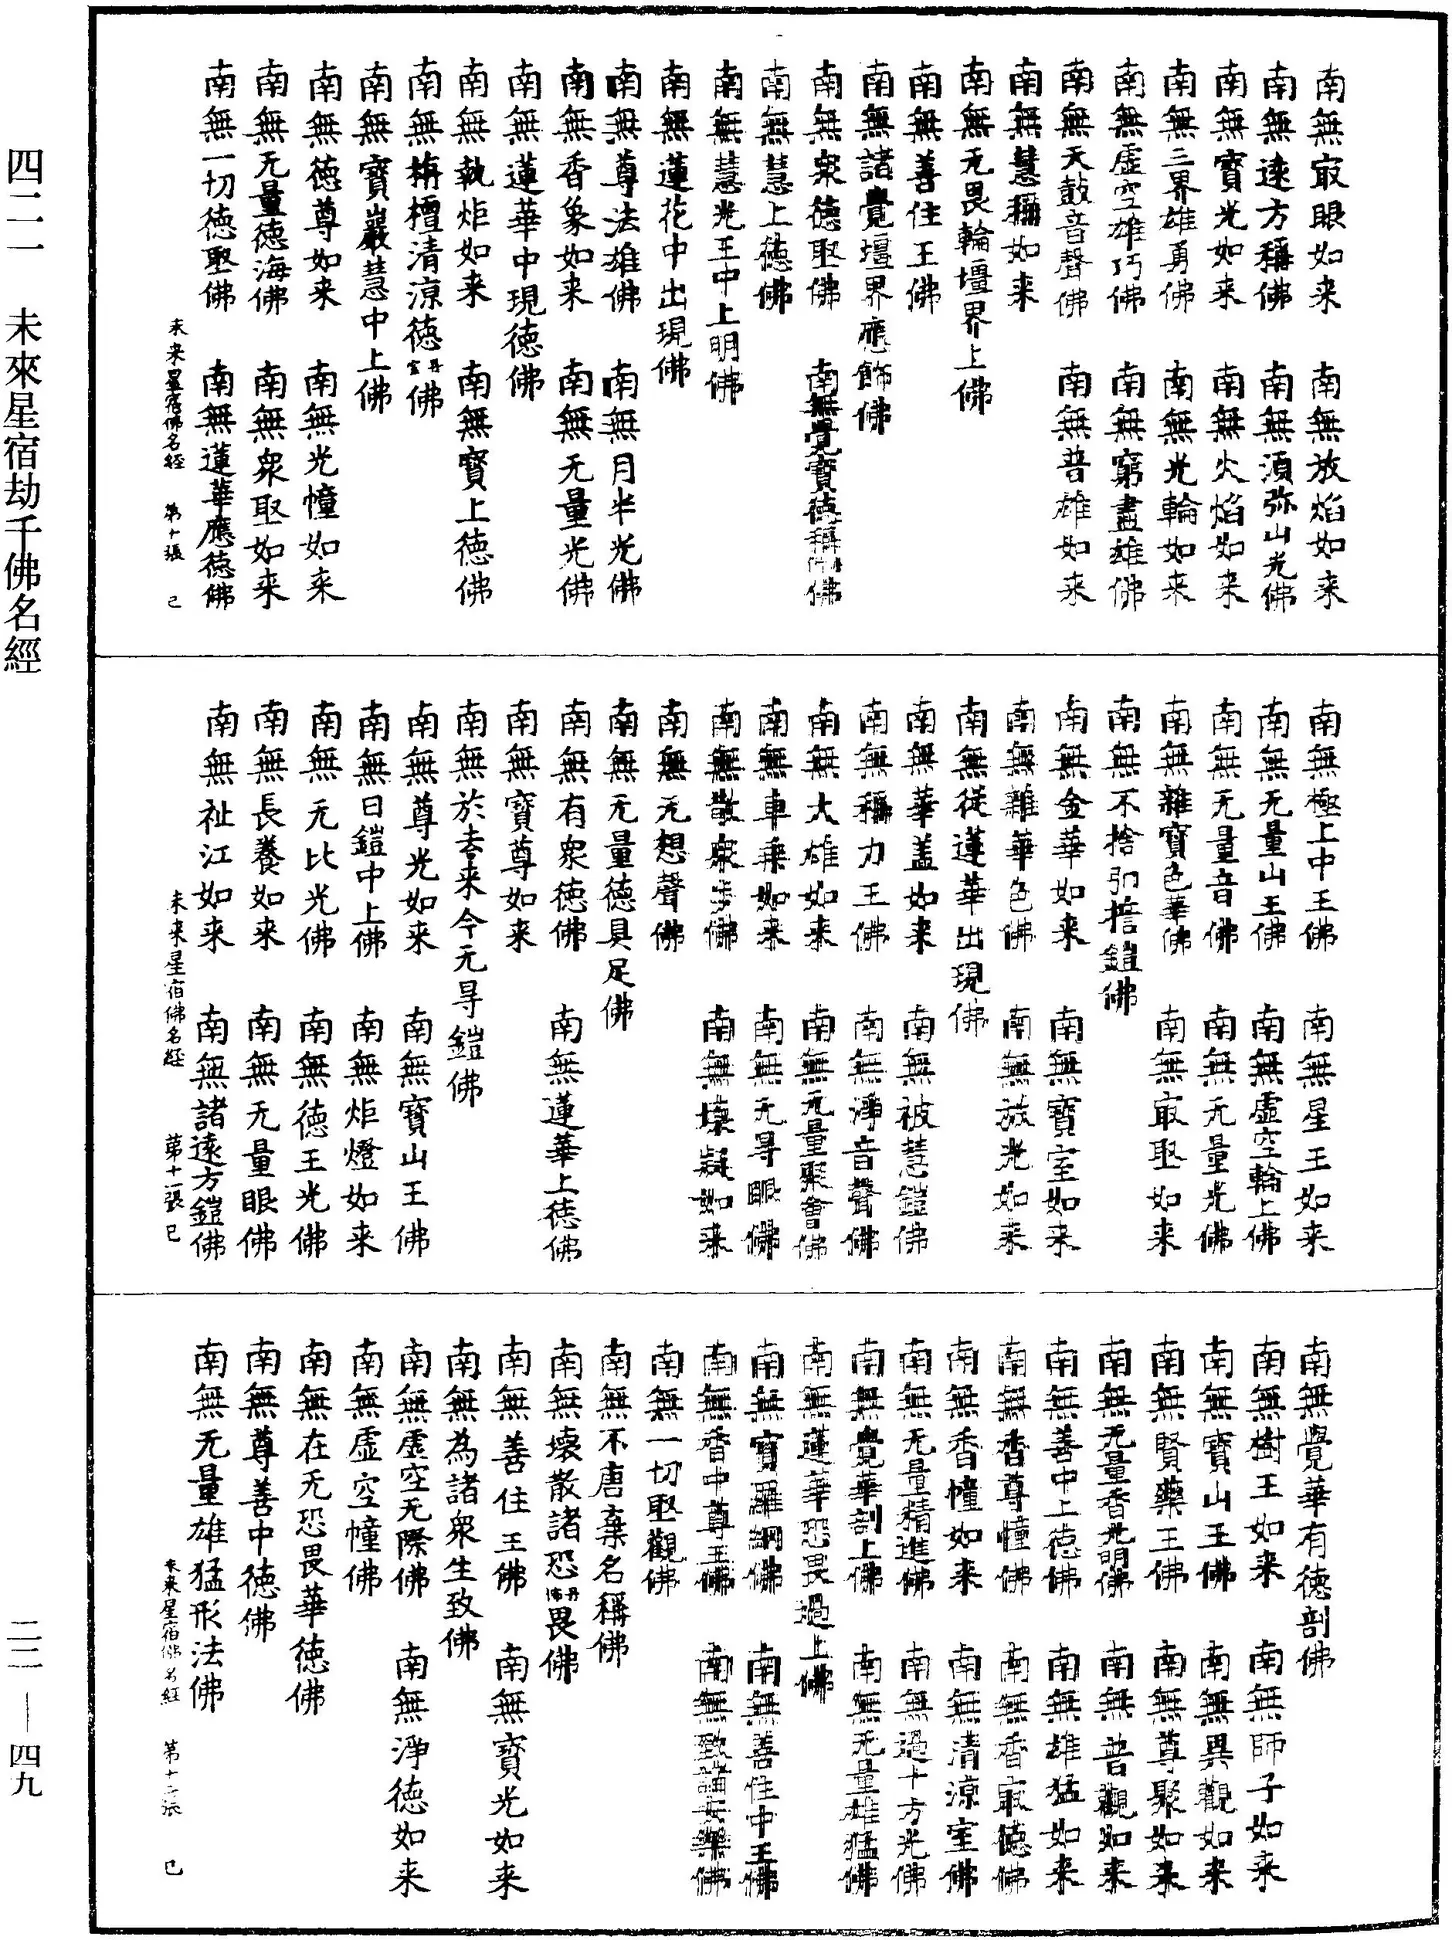 南無㝡眼如来　南無放焰如来
南無逺方稱佛　南無湏弥山光佛
南無寳光如来　南無火焰如来
南無三界雄勇佛　南無光輪如来
南無虛空雄巧佛　南無窮盡雄佛
南無天鼓音聲佛　南無普雄如来
南無慧稱如来
南無无畏輪壃界上佛
南無善住王佛
南無諸覺壃界應飾佛
南無衆徳聚佛　南無覺寳徳稱佛
南無慧上徳佛
南無慧光王中上明佛
南無蓮花中出現佛
南無尊法雄佛　南無月半光佛
南無香象如来　南無无量光佛
南無蓮華中現徳佛
南無執炬如来　南無寳上徳佛
南無栴檀清涼徳丹室佛
南無寳巖慧中上佛
南無徳尊如来　南無光幢如来
南無无量徳海佛　南無衆聚如来
南無一切徳聚佛　南無蓮華應徳佛
未来星宿佛名經　第十張　已
南無極上中王佛　南無星王如来
南無无量山王佛　南無虛空輪上佛
南無无量音佛　南無无量光佛
南無雜寳色華佛　南無㝡聚如来
南無不捨弘誓鎧佛
南無金華如来　南無寳室如来
南無雜華色佛　南無放光如来
南無従蓮華出現佛
南無華盖如来　南無被慧鎧佛
南無稱力王佛　南無淨音聲佛
南無大雄如来　南無无量聚會佛
南無車乗如来　南無无㝵眼佛
南無散衆步佛　南無壞疑如来
南無无想聲佛
南無无量徳具足佛
南無有衆徳佛　南無蓮華上徳佛
南無寳尊如来
南無於去来今无㝵鎧佛
南無尊光如来　南無寳山王佛
南無日鎧中上佛　南無炬燈如来
南無无比光佛　南無徳王光佛
南無長養如来　南無无量眼佛
南無祉江如来　南無諸逺方鎧佛
未来星宿佛名經　第十一張　已
南無覺華有徳剖佛
南無樹王如来　南無師子如来
南無寳山王佛　南無異觀如来
南無賢藥王佛　南無尊聚如来
南無无量香光明佛　南無普觀如来
南無善中上徳佛　南無雄猛如来
南無香尊幢佛　南無香㝡徳佛
南無香幢如来　南無清涼室佛
南無无量精進佛　南無過十方光佛
南無覺華剖上佛　南無无量雄猛佛
南無蓮華恐畏過上佛
南無寳羅網佛　南無善住中王佛
南無香中尊王佛　南無致諸安樂佛
南無一切聚觀佛
南無不唐棄名稱佛
南無壞散諸恐丹怖畏佛
南無善住王佛　南無寳光如来
南無為諸衆生致佛
南無虛空无際佛　南無淨徳如来
南無虛空幢佛
南無在无恐畏華徳佛
南無尊善中徳佛
南無无量雄猛形法佛
未来星宿佛名經　第十二張　已
四二一　未來星宿劫千佛名經
二二—四九